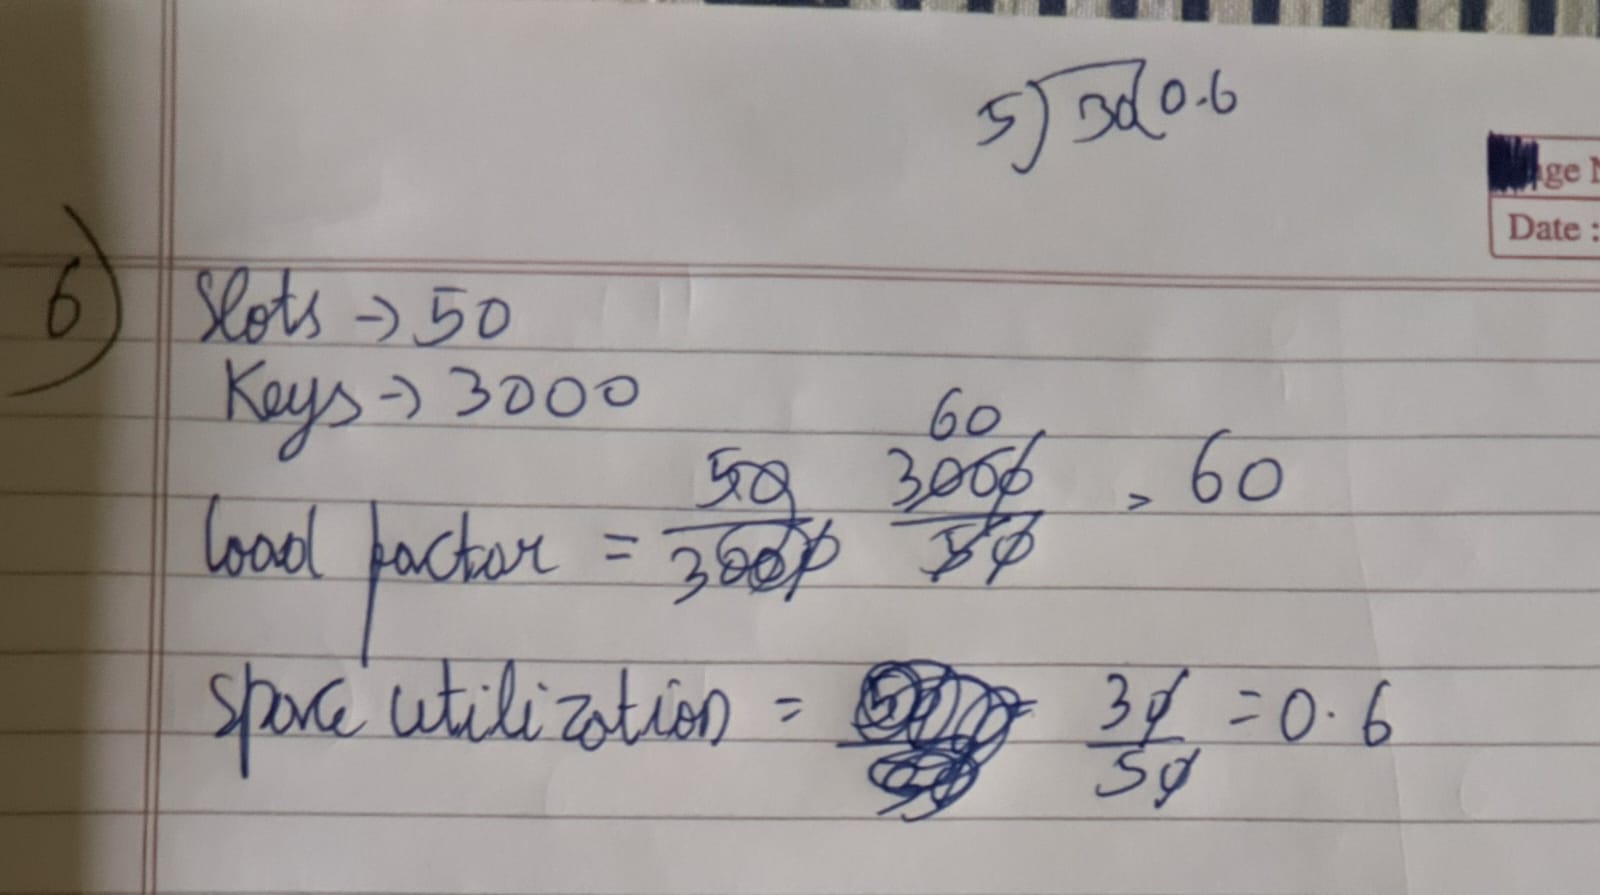 5) 30 ( 0.6
ge N
Date :
6) Slots → 50
Keys → 3000
60
load factor = 50/3000 3000/50 = 60
Space utilization = 30/50 = 0.6